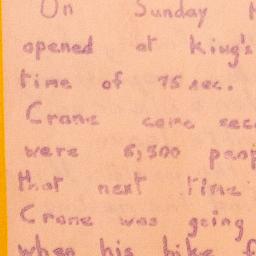 On Sunday M
opened at King's
time of 75 sec.
Crane came sec
were 6,500 peop
that next time
Crane was going
when his bike f